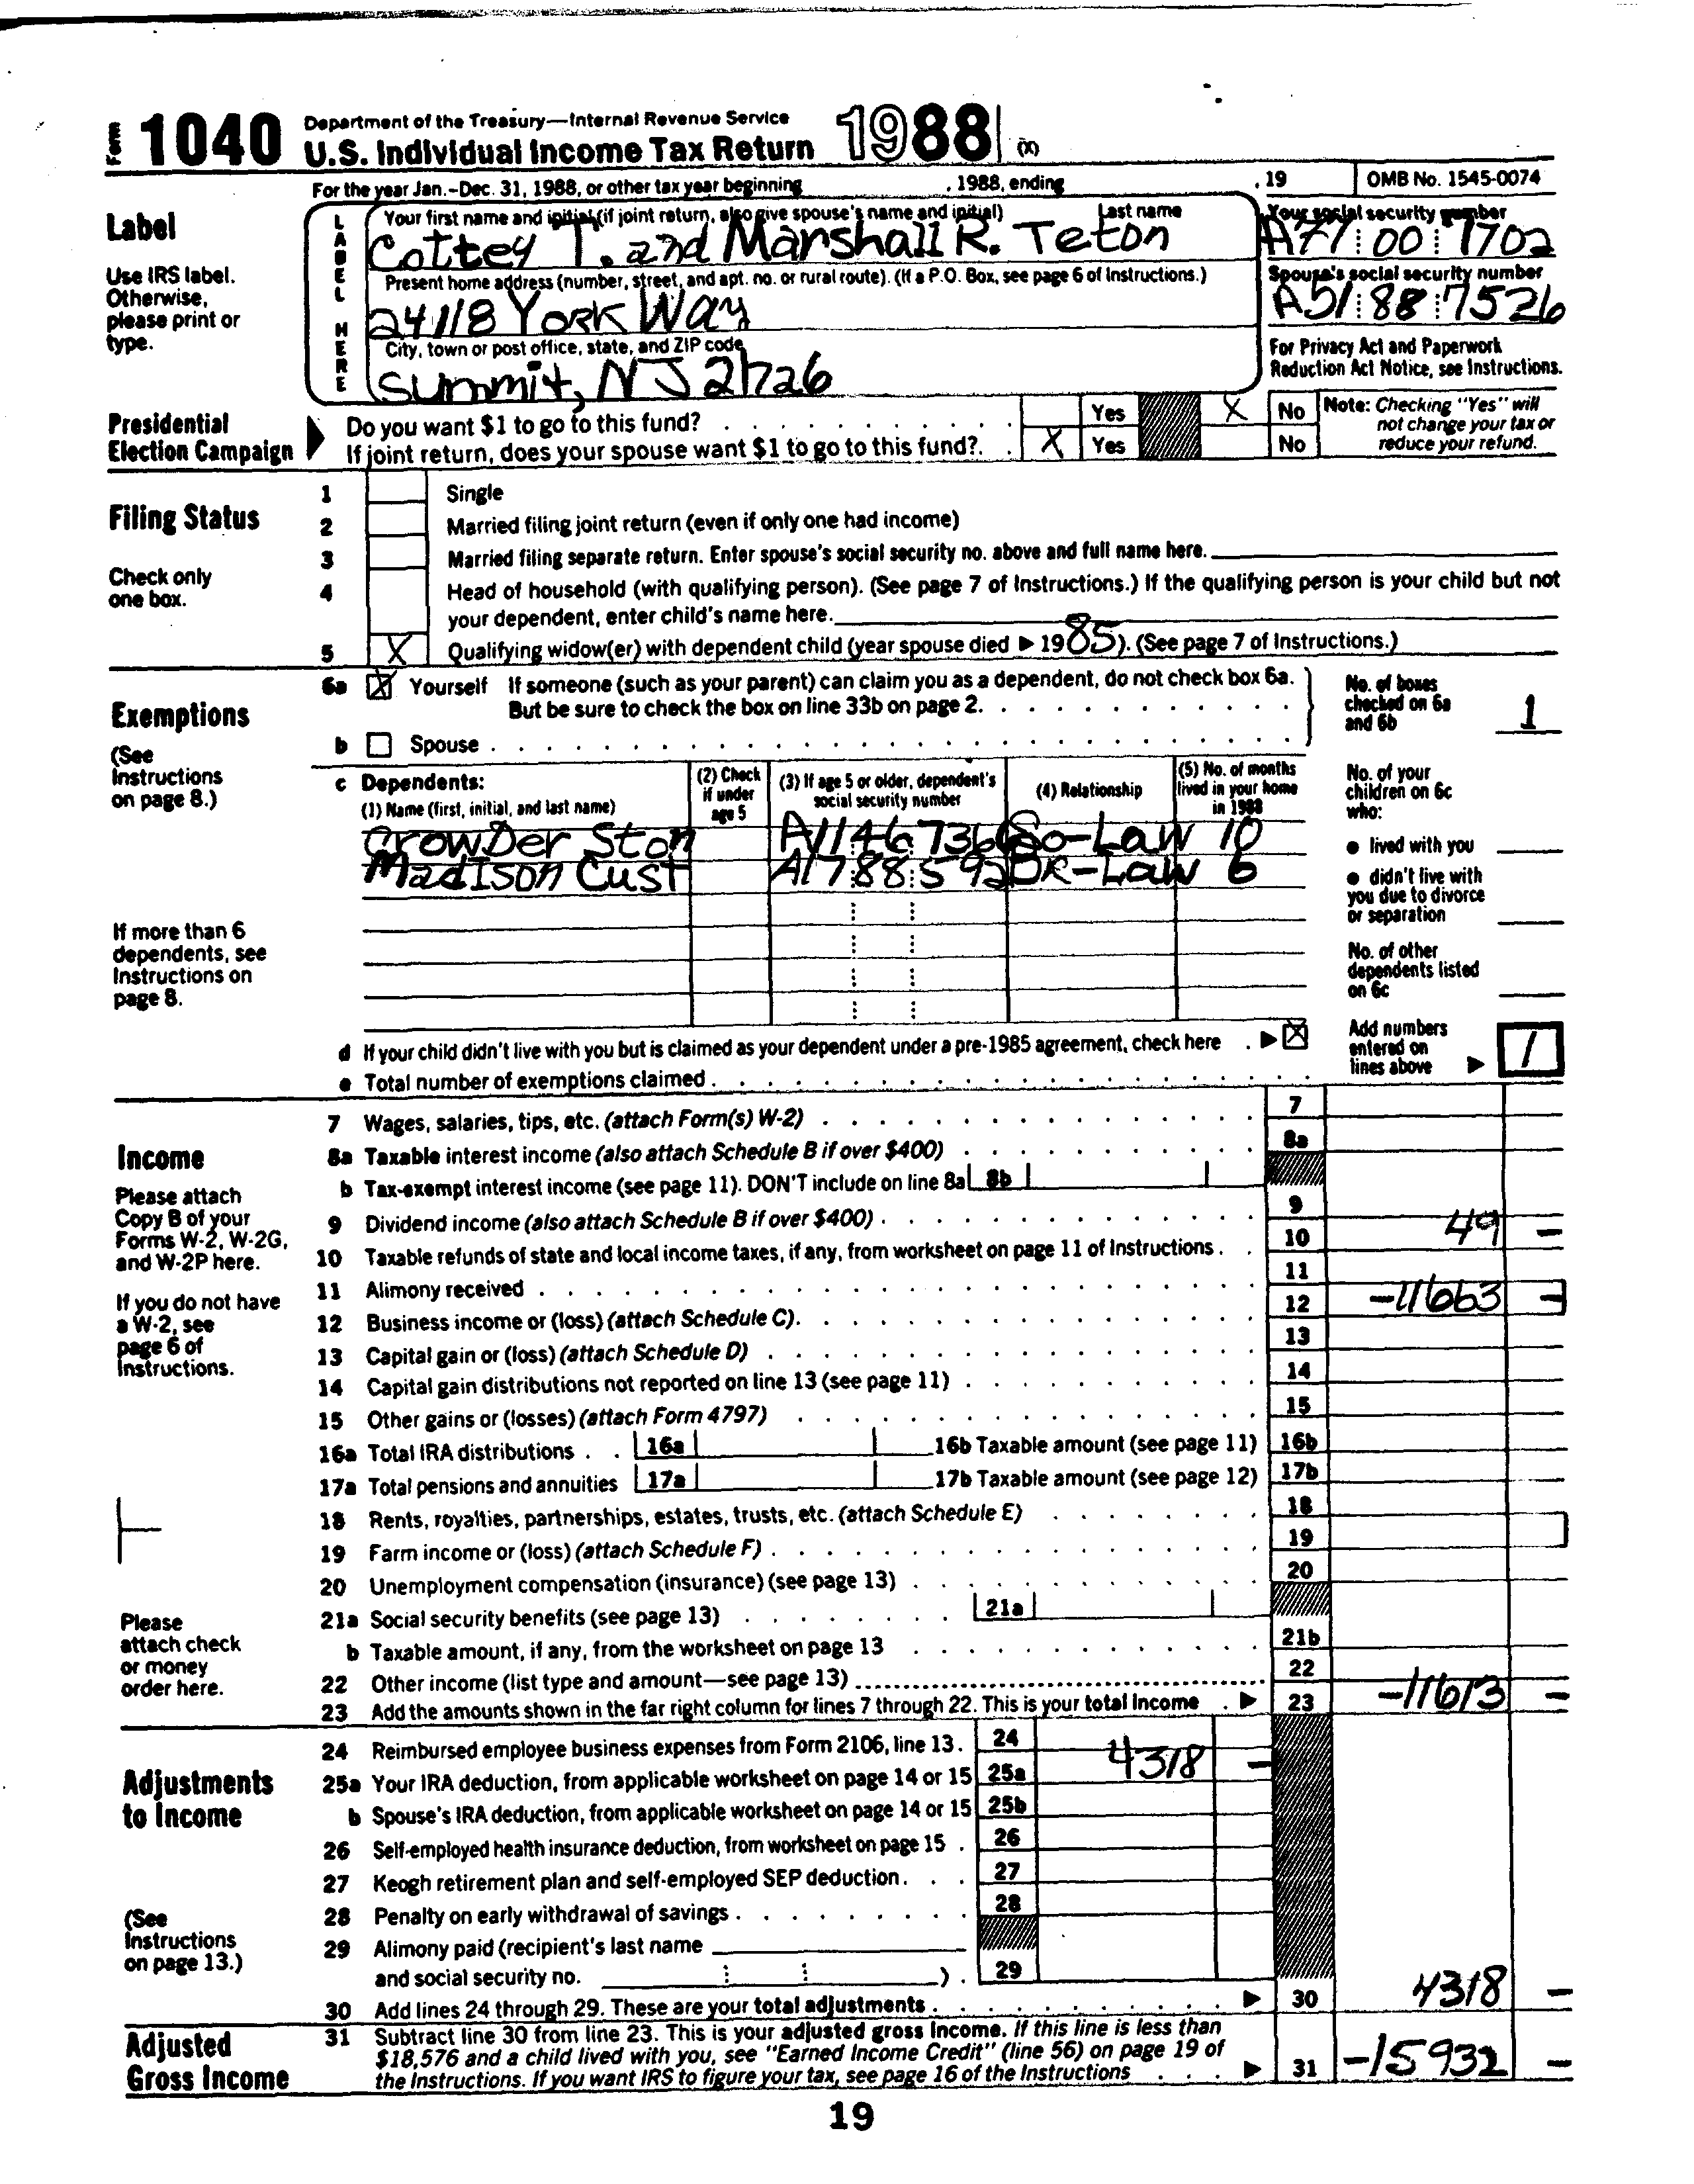 Form 1040 Department of the Treasury—Internal Revenue Service
U.S. Individual Income Tax Return 1988 (X)
For the year Jan.–Dec. 31, 1988, or other tax year beginning , 1988, ending , 19 OMB No. 1545-0074
Label
Use IRS label.
Otherwise,
please print or
type.
LABEL HERE
Your first name and initial (if joint return, also give spouse's name and initial) Last name
Cottey T. and Marshall R. Teton
Your social security number
A77 00 7702
Present home address (number, street, and apt. no. or rural route). (If a P.O. Box, see page 6 of Instructions.)
24118 York Way
Spouse's social security number
A51 88 7526
City, town or post office, state, and ZIP code
Summit, NJ 21726
For Privacy Act and Paperwork
Reduction Act Notice, see Instructions.
Presidential
Election Campaign
Do you want $1 to go to this fund? Yes X No
If joint return, does your spouse want $1 to go to this fund? X Yes No
Note: Checking "Yes" will
not change your tax or
reduce your refund.
Filing Status
Check only
one box.
1 Single
2 Married filing joint return (even if only one had income)
3 Married filing separate return. Enter spouse's social security no. above and full name here.
4 Head of household (with qualifying person). (See page 7 of Instructions.) If the qualifying person is your child but not
your dependent, enter child's name here.
5 X Qualifying widow(er) with dependent child (year spouse died ▶ 1985). (See page 7 of Instructions.)
Exemptions
(See
Instructions
on page 8.)
6a X Yourself If someone (such as your parent) can claim you as a dependent, do not check box 6a.
But be sure to check the box on line 33b on page 2.
b Spouse
No. of boxes
checked on 6a
and 6b 1
c Dependents:
(1) Name (first, initial, and last name)
(2) Check
if under
age 5
(3) If age 5 or older, dependent's
social security number
(4) Relationship
(5) No. of months
lived in your home
in 1988
Crowder Ston A11 46 736 So-Law 10
Madison Cust A17 88 592 DR-Law 6
No. of your
children on 6c
who:
● lived with you
● didn't live with
you due to divorce
or separation
No. of other
dependents listed
on 6c
If more than 6
dependents, see
Instructions on
page 8.
d If your child didn't live with you but is claimed as your dependent under a pre-1985 agreement, check here ▶ X
e Total number of exemptions claimed
Add numbers
entered on
lines above ▶ 1
Income
Please attach
Copy B of your
Forms W-2, W-2G,
and W-2P here.
If you do not have
a W-2, see
page 6 of
Instructions.
Please
attach check
or money
order here.
7 Wages, salaries, tips, etc. (attach Form(s) W-2) 7
8a Taxable interest income (also attach Schedule B if over $400) 8a
b Tax-exempt interest income (see page 11). DON'T include on line 8a 8b
9 Dividend income (also attach Schedule B if over $400) 9
10 Taxable refunds of state and local income taxes, if any, from worksheet on page 11 of Instructions 10 49 –
11 Alimony received 11
12 Business income or (loss) (attach Schedule C) 12 -11663 –
13 Capital gain or (loss) (attach Schedule D) 13
14 Capital gain distributions not reported on line 13 (see page 11) 14
15 Other gains or (losses) (attach Form 4797) 15
16a Total IRA distributions 16a 16b Taxable amount (see page 11) 16b
17a Total pensions and annuities 17a 17b Taxable amount (see page 12) 17b
18 Rents, royalties, partnerships, estates, trusts, etc. (attach Schedule E) 18
19 Farm income or (loss) (attach Schedule F) 19
20 Unemployment compensation (insurance) (see page 13) 20
21a Social security benefits (see page 13) 21a
b Taxable amount, if any, from the worksheet on page 13 21b
22 Other income (list type and amount—see page 13) 22
23 Add the amounts shown in the far right column for lines 7 through 22. This is your total income ▶ 23 -11613 –
Adjustments
to Income
(See
Instructions
on page 13.)
24 Reimbursed employee business expenses from Form 2106, line 13. 24
25a Your IRA deduction, from applicable worksheet on page 14 or 15 25a 4318 –
b Spouse's IRA deduction, from applicable worksheet on page 14 or 15 25b
26 Self-employed health insurance deduction, from worksheet on page 15 26
27 Keogh retirement plan and self-employed SEP deduction 27
28 Penalty on early withdrawal of savings 28
29 Alimony paid (recipient's last name
and social security no. ) 29
30 Add lines 24 through 29. These are your total adjustments ▶ 30 4318 –
Adjusted
Gross Income
31 Subtract line 30 from line 23. This is your adjusted gross income. If this line is less than
$18,576 and a child lived with you, see "Earned Income Credit" (line 56) on page 19 of
the Instructions. If you want IRS to figure your tax, see page 16 of the Instructions ▶ 31 -15932 –
19